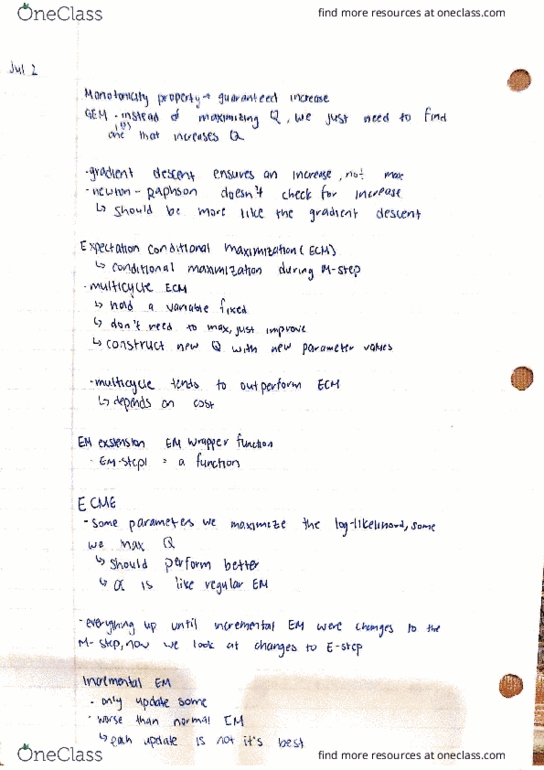 OneClass
find more resources at oneclass.com
Jul 2
Monotonicity property → guaranteed increase
GEM - instead of maximizing Q, we just need to find
one that increases Q
-gradient descent ensures an increase, not max
-newton-raphson doesn't check for increase
↳ should be more like the gradient descent
Expectation conditional maximization (ECM)
↳ conditional maximization during M-step
-multicycle ECM
↳ hold a variable fixed
↳ don't need to max, just improve
↳ construct new Q with new parameter values
-multicycle tends to outperform ECM
↳ depends on cost
EM exstension EM wrapper function
- EM-step1 = a function
ECME
-some parameters we maximize the log-likelihood, some
we max Q
↳ should perform better
↳ α is like regular EM
-everything up until incremental EM were changes to the
M-step, now we look at changes to E-step
Incremental EM
- only update some
- worse than normal EM
↳ each update is not it's best
OneClass
find more resources at oneclass.com